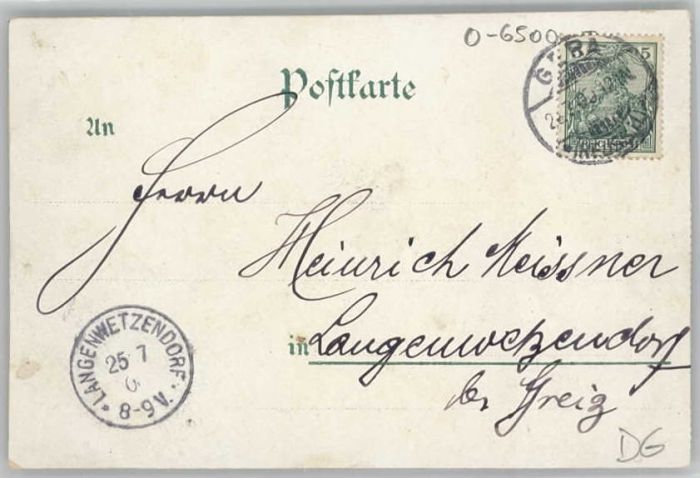 O-6500
Postkarte
GERA
5
An
Herrn
Heinrich Meissner
in Langenwetzendorf
bei Greiz
LANGENWETZENDORF
25 7
8-9V.
DG